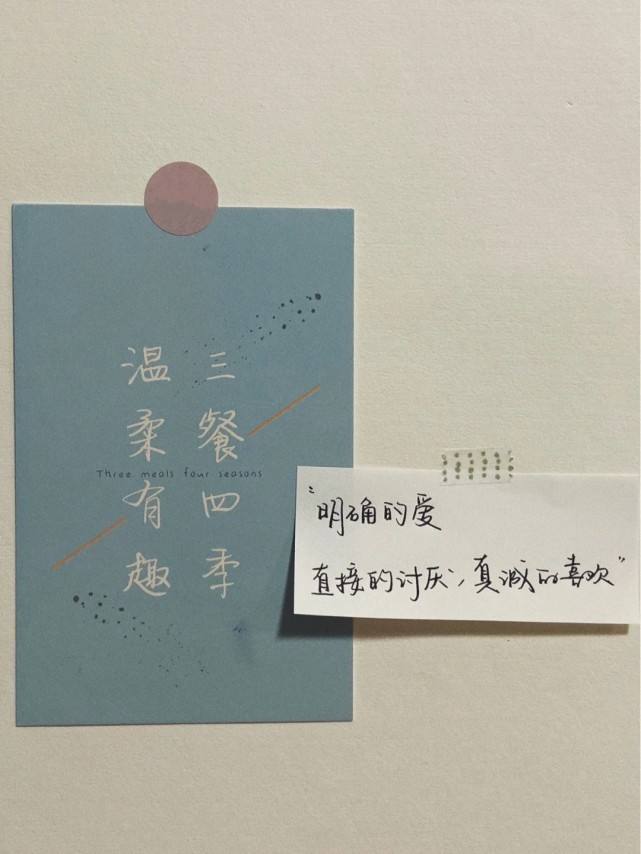 三餐四季
温柔有趣
Three meals four seasons
"明确的爱
直接的讨厌, 真诚的喜欢"